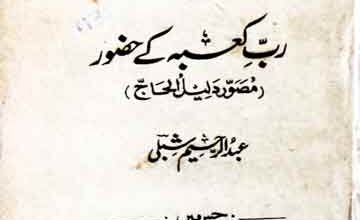 ربِّ کعبہ کے حضور
(مُصوّر دلیلُ الحاجّ)
عبدالرحیم شبلی